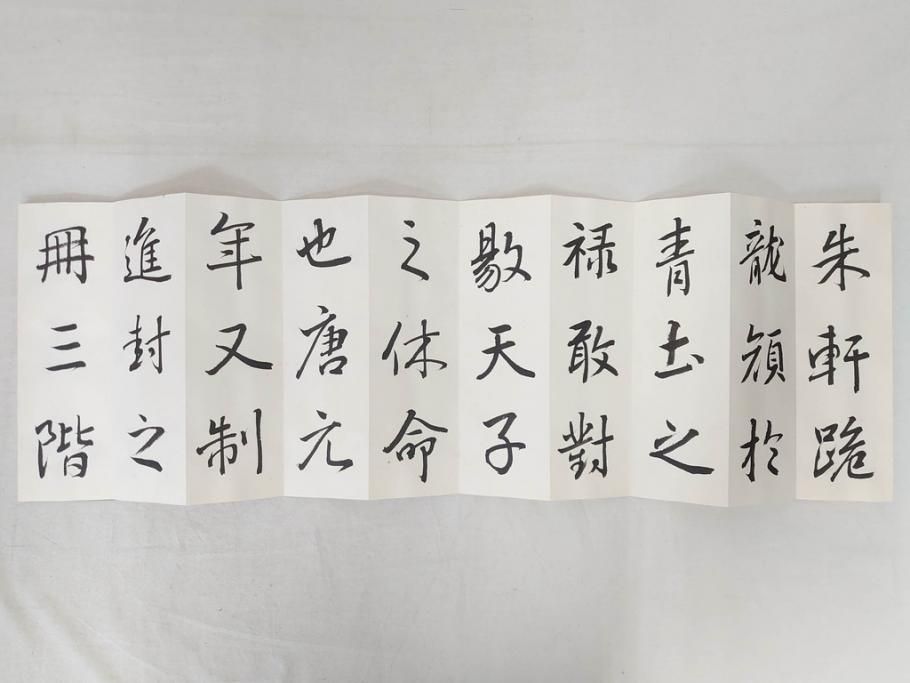 朱軒跪
龍頟於
青土之
禄敢對
敭天子
之休命
也唐元
年又制
進封之
冊三階